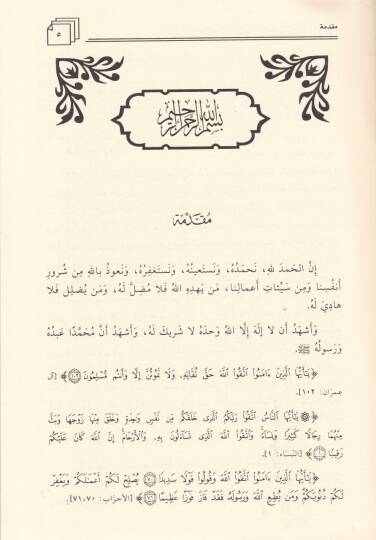 مقدمة
٥
بسم الله الرحمن الرحيم
مُقَدِّمَة
إِنَّ الحَمدَ للهِ، نَحمَدُهُ، وَنَستَعِينُهُ، وَنَستَغفِرُهُ، وَنَعوذُ باللهِ مِن شُرورِ
أَنفُسِنا وَمِن سَيِّئاتِ أَعمالِنا، مَن يَهدِهِ اللهُ فَلا مُضِلَّ لَهُ، وَمَن يُضلِل فَلا
هادِيَ لَهُ.
وَأَشهَدُ أَن لا إِلَهَ إِلَّا اللهُ وَحدَهُ لا شَريكَ لَهُ، وَأَشهَدُ أَنَّ مُحَمَّدًا عَبدُهُ
وَرَسولُهُ ﷺ.
﴿يَٰٓأَيُّهَا ٱلَّذِينَ ءَامَنُوا۟ ٱتَّقُوا۟ ٱللَّهَ حَقَّ تُقَاتِهِۦ وَلَا تَمُوتُنَّ إِلَّا وَأَنتُم مُّسْلِمُونَ ١٠٢﴾ [آل
عِمران: ١٠٢].
﴿۞ يَٰٓأَيُّهَا ٱلنَّاسُ ٱتَّقُوا۟ رَبَّكُمُ ٱلَّذِى خَلَقَكُم مِّن نَّفْسٍ وَٰحِدَةٍ وَخَلَقَ مِنْهَا زَوْجَهَا وَبَثَّ
مِنْهُمَا رِجَالًا كَثِيرًا وَنِسَآءً وَٱتَّقُوا۟ ٱللَّهَ ٱلَّذِى تَسَآءَلُونَ بِهِۦ وَٱلْأَرْحَامَ إِنَّ ٱللَّهَ كَانَ عَلَيْكُمْ
رَقِيبًا ١﴾ [النِّساء: ١].
﴿يَٰٓأَيُّهَا ٱلَّذِينَ ءَامَنُوا۟ ٱتَّقُوا۟ ٱللَّهَ وَقُولُوا۟ قَوْلًا سَدِيدًا ٧٠ يُصْلِحْ لَكُمْ أَعْمَٰلَكُمْ وَيَغْفِرْ
لَكُمْ ذُنُوبَكُمْ وَمَن يُطِعِ ٱللَّهَ وَرَسُولَهُۥ فَقَدْ فَازَ فَوْزًا عَظِيمًا ٧١﴾ [الأحزاب: ٧٠، ٧١].